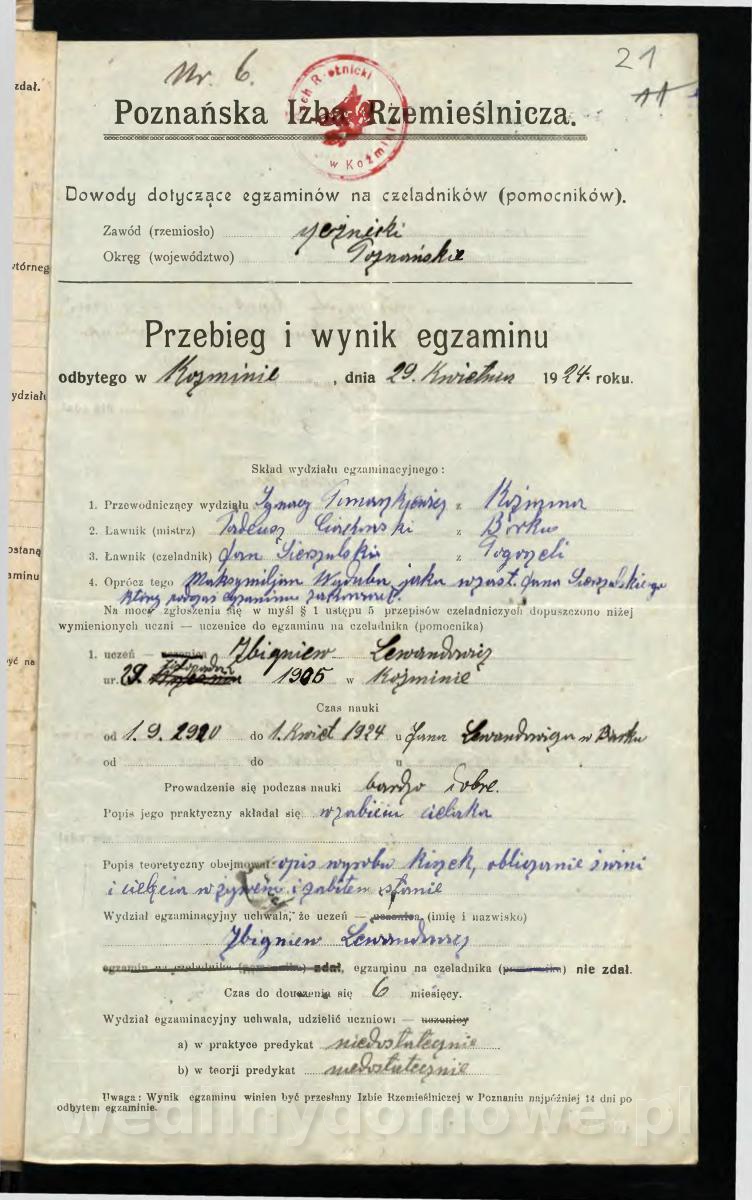 Nr. 6.
21
11
zdał.
Poznańska Izba Rzemieślnicza.
w Koźminie
Dowody dotyczące egzaminów na czeladników (pomocników).
Zawód (rzemiosło) rzeźnicki
Okręg (województwo) Poznańskie
Przebieg i wynik egzaminu
odbytego w Kozminie, dnia 29. Kwietnia 1924. roku.
Skład wydziału egzaminacyjnego:
1. Przewodniczący wydziału Ignacy z Kozmina
2. Ławnik (mistrz) Tadeusz z Borku
3. Ławnik (czeladnik) Jan z Pogorzeli
4. Oprócz tego Maksymiljan Wyduba, jako w zast. Jana
który podczas egzaminu
Na mocy zgłoszenia się w myśl § 1 ustępu 5 przepisów czeladniczych dopuszczono niżej
wymienionych uczni — uczenice do egzaminu na czeladnika (pomocnika)
1. uczeń — uczenica Zbigniew Lewandowicz
ur. 29. listopada 1905 w Koźminie
Czas nauki
od 1.9.1920 do 1. Kwiet 1924 u Jana Lewandowicza w Borku
od do u
Prowadzenie się podczas nauki bardzo dobre.
Popis jego praktyczny składał się w zabiciu cielaka
Popis teoretyczny obejmował opis wyrobu kiszek, obliczanie świni
i cielęcia w żywem i zabitem stanie
Wydział egzaminacyjny uchwala, że uczeń — uczenica (imię i nazwisko)
Zbigniew Lewandowicz
egzamin na czeladnika (pomocnika) zdał, egzaminu na czeladnika (pomocnika) nie zdał.
Czas do douczenia się 6 miesięcy.
Wydział egzaminacyjny uchwala, udzielić uczniowi — uczenicy
a) w praktyce predykat niedostatecznie
b) w teorji predykat niedostatecznie
Uwaga: Wynik egzaminu winien być przesłany Izbie Rzemieślniczej w Poznaniu najpóźniej 14 dni po
odbytem egzaminie.
wedlinydomowe.pl